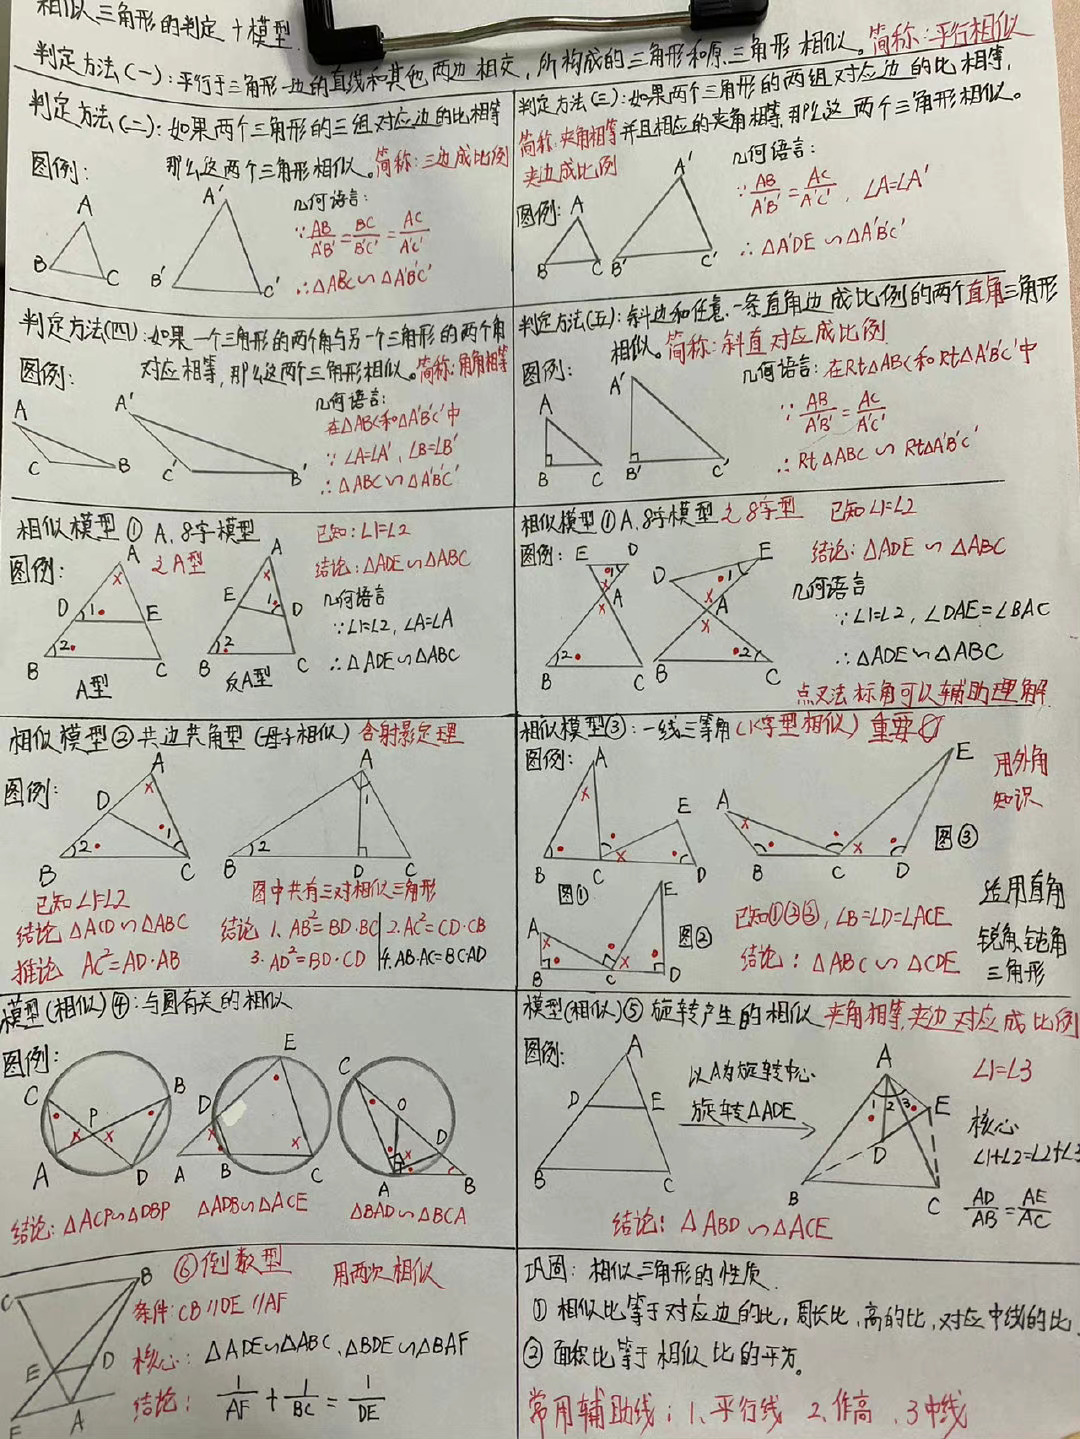 相似三角形的判定+模型.
判定方法(一):平行于三角形一边的直线和其他两边相交,所构成的三角形和原三角形相似。简称:平行相似
判定方法(二):如果两个三角形的三组对应边的比相等
那么这两个三角形相似。简称:三边成比例
图例:
几何语言:
∵AB/A'B'=BC/B'C'=AC/A'C'
∴△ABC∽△A'B'C'
A
B
C
A'
B'
C'
判定方法(三):如果两个三角形的两组对应边的比相等,
简称:夹角相等 并且相应的夹角相等,那么这两个三角形相似。
夹边成比例
几何语言:
图例:
∵AB/A'B'=AC/A'C',∠A=∠A'
∴△A'DE∽△A'B'C'
A
B
C
A'
B'
C'
判定方法(四):如果一个三角形的两个角与另一个三角形的两个角
对应相等,那么这两个三角形相似。简称:角角相等
图例:
几何语言:
在△ABC和△A'B'C'中
∵∠A=∠A',∠B=∠B'
∴△ABC∽△A'B'C'
A
C
B
A'
C'
B'
判定方法(五):斜边和任意一条直角边成比例的两个直角三角形
相似。简称:斜直对应成比例.
图例:
几何语言:在Rt△ABC和Rt△A'B'C'中
∵AB/A'B'=AC/A'C'
∴Rt△ABC∽Rt△A'B'C'
A
B
C
A'
B'
C'
相似模型①A、8字模型
之A型
图例:
已知:∠1=∠2
结论:△ADE∽△ABC
几何语言
∵∠1=∠2,∠A=∠A
∴△ADE∽△ABC
A
D 1 E
B 2 C
A型
A
E 1 D
B 2 C
反A型
相似模型①A、8字模型之8字型 已知∠1=∠2
图例:
结论:△ADE∽△ABC
几何语言
∵∠1=∠2,∠DAE=∠BAC
∴△ADE∽△ABC
点叉法标角可以辅助理解
E D
1
A
2
B C
E
D 1
A
2
B C
相似模型②共边共角型(母子相似)含射影定理
图例:
A
D
1
2
B C
A
1
2
B D C
已知∠1=∠2
结论 △ACD∽△ABC
推论 AC²=AD·AB
图中共有三对相似三角形
结论 1、AB²=BD·BC 2、AC²=CD·CB
3、AD²=BD·CD 4、AB·AC=BC·AD
相似模型③:一线三等角(K字型相似)重要
图例:
用外角
知识
A
E
B C D
图①
A
E
B C D
图②
A
E
B C D
图③
已知①②③,∠B=∠D=∠ACE
结论:△ABC∽△CDE
适用直角
锐角、钝角
三角形
模型(相似)④:与圆有关的相似
图例:
C B
P
A D
E
D
A B C
C
O
D
A B
结论:△ACP∽△DBP
△ADB∽△ACE
△BAD∽△BCA
模型(相似)⑤旋转产生的相似 夹角相等,夹边对应成比例
图例:
A
D E
B C
以A为旋转中心
旋转△ADE
A
1 2 3
E
D
B C
∠1=∠3
核心
∠1+∠2=∠2+∠3
AD/AB=AE/AC
结论:△ABD∽△ACE
⑥倒数型
用两次相似
条件:CB//DE//AF
核心:△ADE∽△ABC、△BDE∽△BAF
结论:1/AF+1/BC=1/DE
B
C
E D
F A
巩固:相似三角形的性质.
①相似比等于对应边的比,周长比,高的比,对应中线的比.
②面积比等于相似比的平方。
常用辅助线:1、平行线 2、作高、3中线